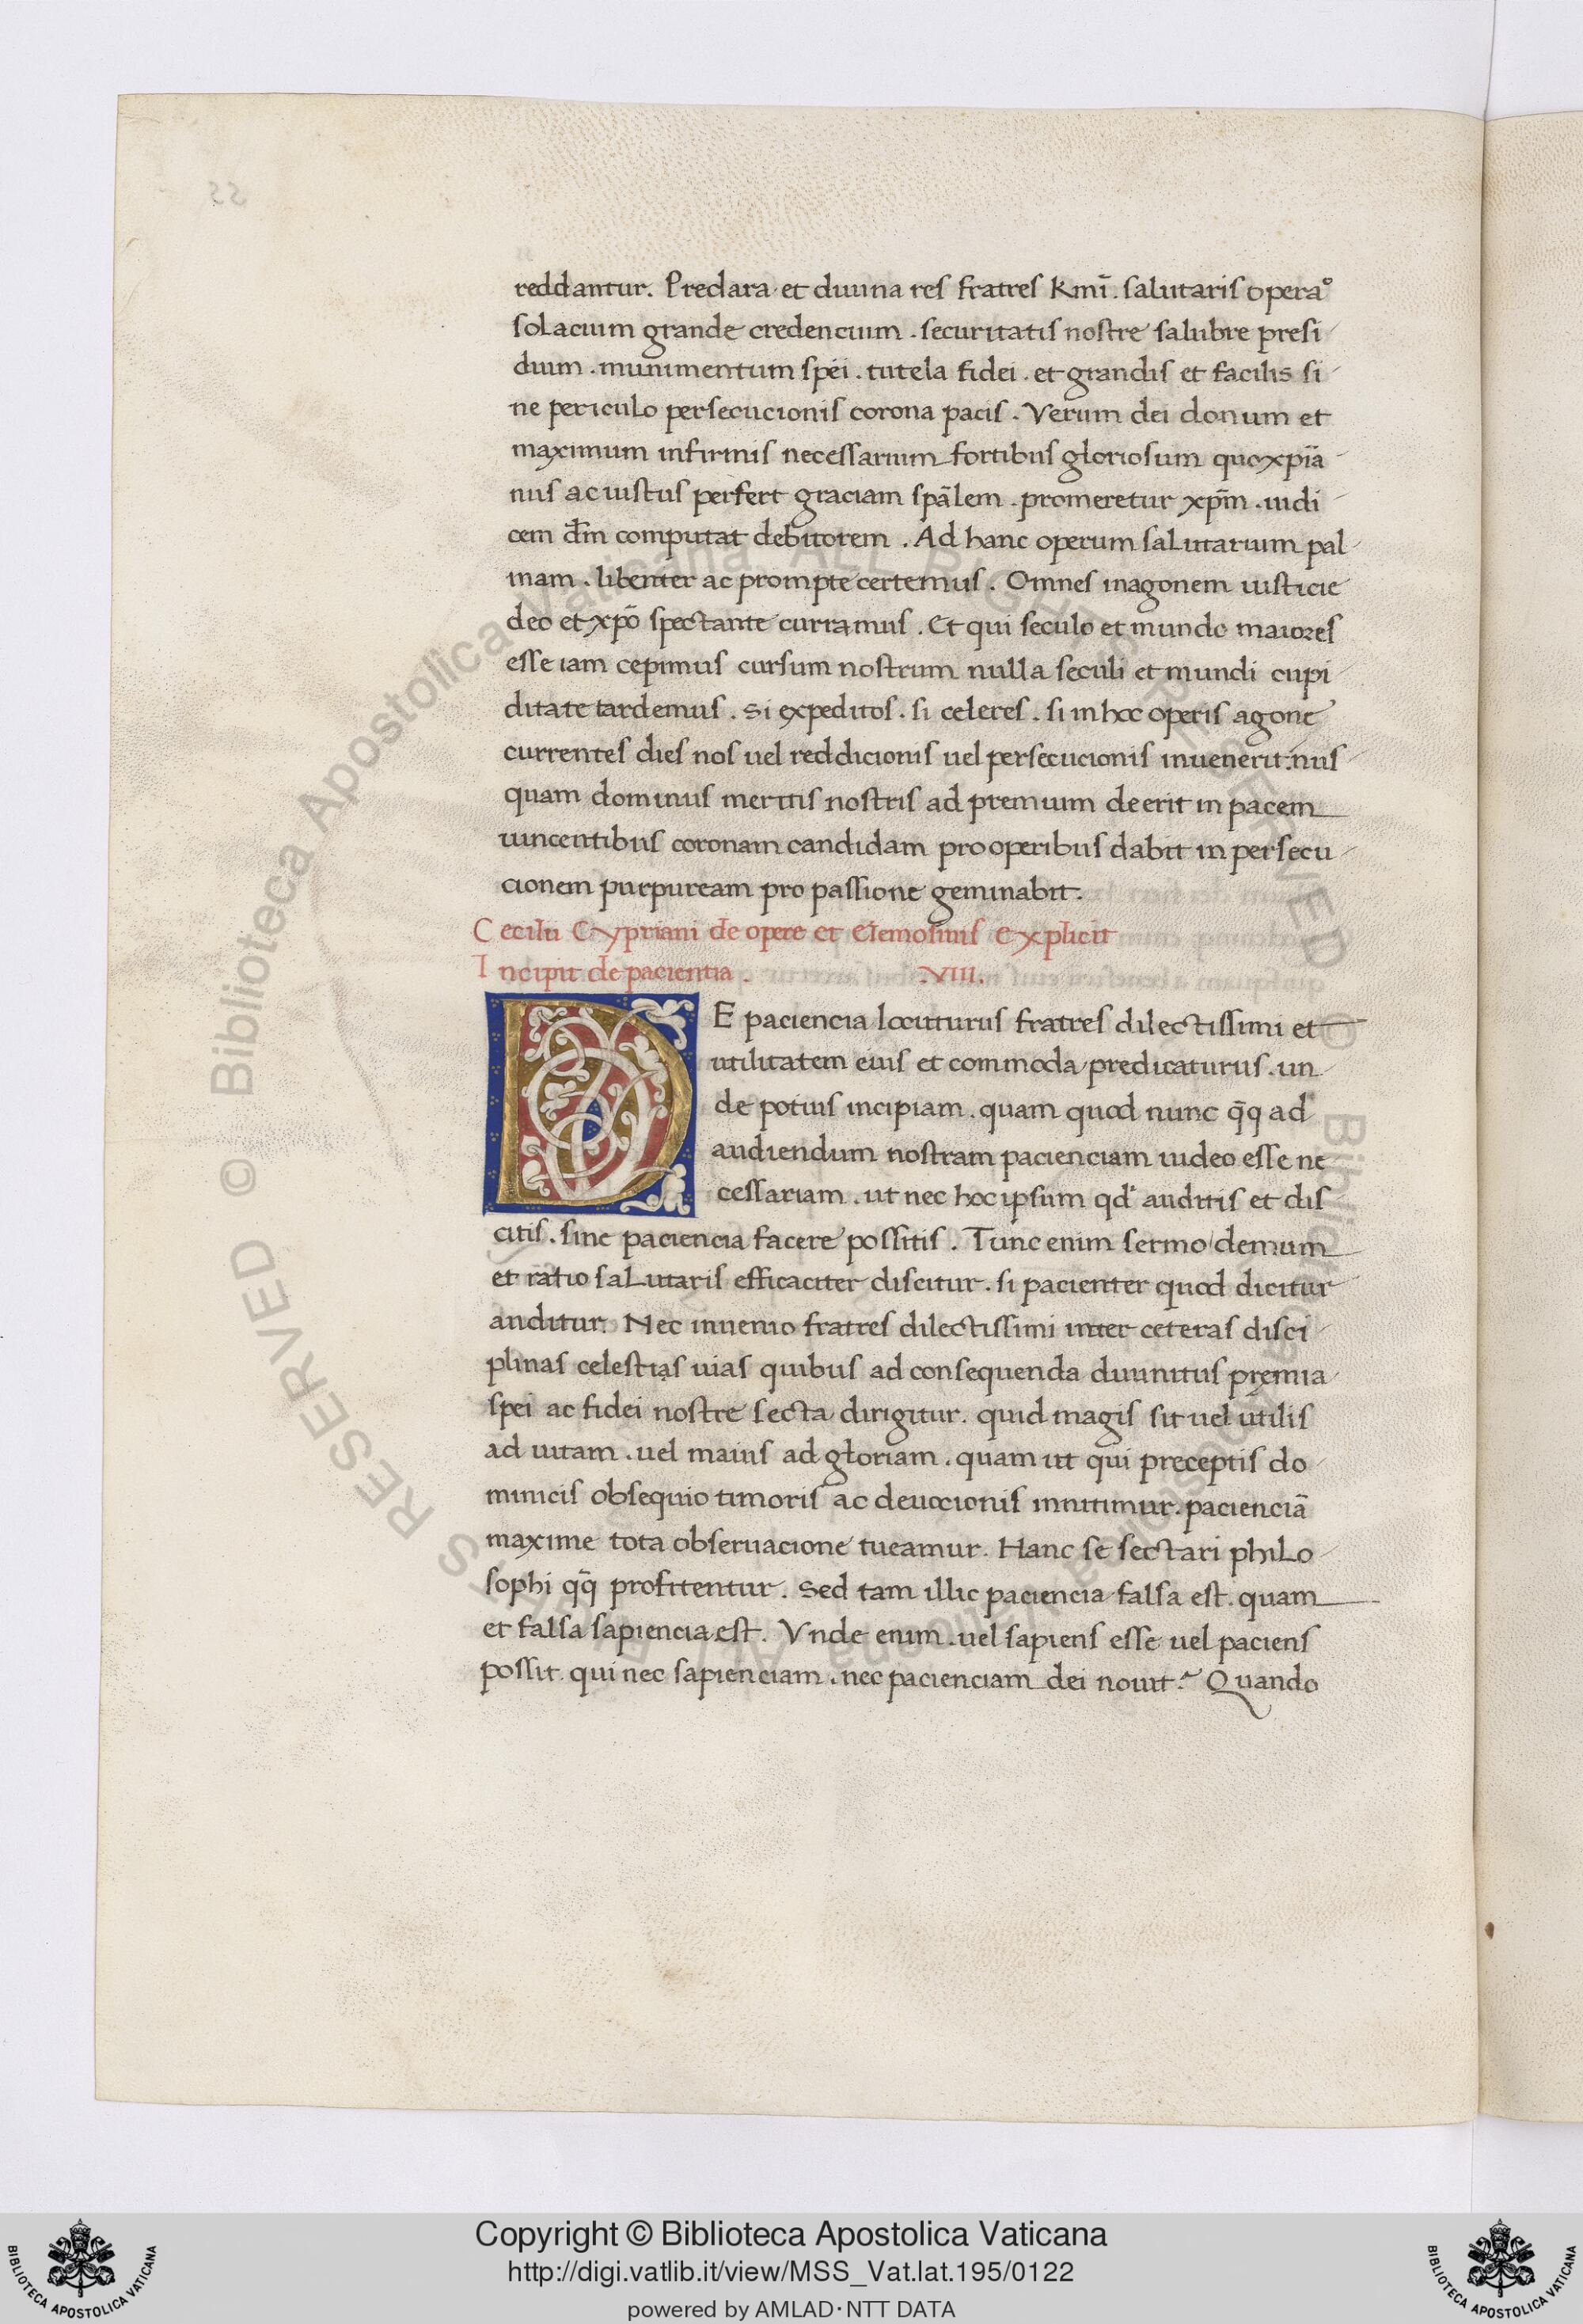 reddantur. Preclara et diuina res fratres Kmī. salutaris operaº
solacium grande credencium. securitatis nostre salubre presi
dium. munimentum spei. tutela fidei. et grandis et facilis si
ne periculo persecucionis corona pacis. Verum dei donum et
maximum infirmis necessarium fortibus gloriosum quo xpiā
nus ac iustus perfert graciam spālem. promeretur xpm̄. iudi
cem dm̄ computat debitorem. Ad hanc operum salutarium pal
mam. libenter ac prompte certemus. Omnes in agonem iusticie
deo et xpō spectante curramus. Et qui seculo et mundo maiores
esse iam cepimus cursum nostrum nulla seculi et mundi cupi
ditate tardemus. Si expeditos. si celeres. si in hoc operis agone
currentes dies nos uel reddicionis uel persecucionis inuenerit. nus
quam dominus meritis nostris ad premium deerit in pacem
uincentibus coronam candidam pro operibus dabit in persecu
cionem purpuream pro passione geminabit.
Cecilii Cypriani de opere et elemosinis explicit
Incipit de pacientia. .VIIII.
DE paciencia locuturus fratres dilectissimi et
utilitatem eius et commoda predicaturus. un
de potius incipiam. quam quod nunc q̄q ad
audiendum nostram pacienciam uideo esse ne
cessariam. ut nec hoc ipsum qd' auditis et dis
citis. sine paciencia facere possitis. Tunc enim sermo demum
et ratio salutaris efficaciter discitur. si pacienter quod dicitur
auditur. Nec inuenio fratres dilectissimi inter ceteras disci
plinas celestias uias quibus ad consequenda diuinitus premia
spei ac fidei nostre secta dirigitur. quid magis sit uel utilis
ad uitam. uel maius ad gloriam. quam ut qui preceptis do
minicis obsequio timoris ac deuocionis innitimur. pacienciā
maxime tota obseruacione tueamur. Hanc se sectari philo
sophi qq̄ profitentur. Sed tam illic paciencia falsa est. quam
et falsa sapiencia est. Vnde enim. uel sapiens esse uel paciens
possit. qui nec sapienciam. nec pacienciam dei nouit? Quando
Copyright © Biblioteca Apostolica Vaticana
http://digi.vatlib.it/view/MSS_Vat.lat.195/0122
powered by AMLAD·NTT DATA
BIBLIOTECA APOSTOLICA VATICANA
BIBLIOTECA APOSTOLICA VATICANA